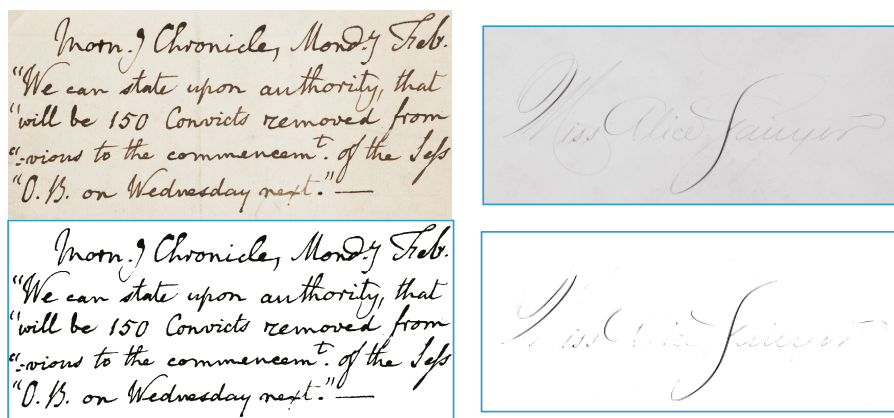 Morn.g Chronicle, Mond.y Feb.
"We can state upon authority, that
"will be 150 Convicts removed from
"-vious to the commencem.t of the Sess
"O.B. on Wednesday next."—
Miss Alice Sawyer
Morn.g Chronicle, Mond.y Feb.
"We can state upon authority, that
"will be 150 Convicts removed from
"-vious to the commencem.t of the Sess
"O.B. on Wednesday next."—
Miss Alice Sawyer